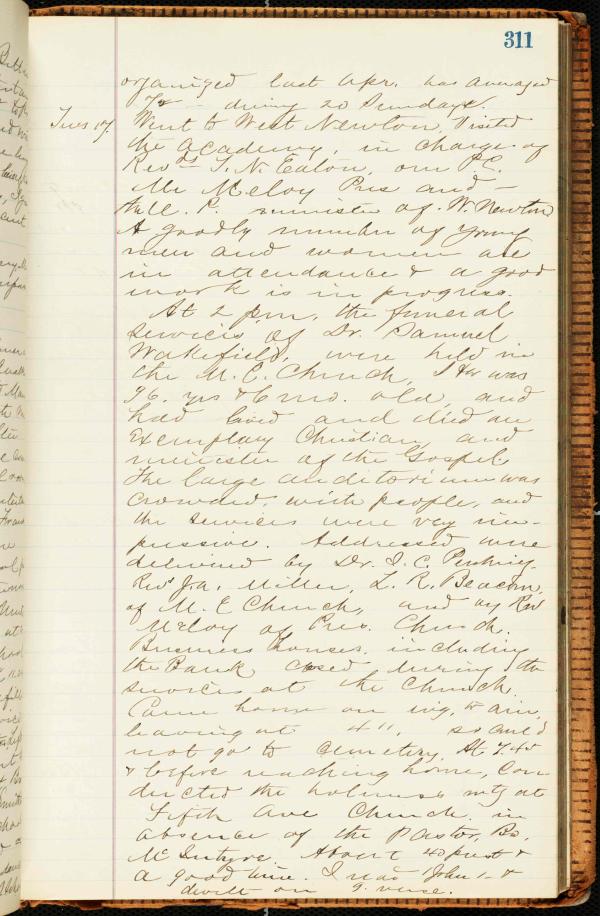 311
organized last Apr. has averaged
72 — during 20 Sundays.
Tues 17. Went to West Newton, Visited
the Academy, in charge of
Revds T. N. Eaton, our P.C.
Mr Meloy Pres and —
the U. P. minister of W. Newton
A goodly number of young
men and women are
in attendance & a good
work is in progress.
At 2 p.m, the funeral
services of Dr. Samuel
Wakefield, were held in
the M. E. Church, He was
96. yrs & 6 mo. old, and
had lived and died an
Exemplary Christian, and
minister of the Gospel.
The large auditorium was
crowded, with people, and
the services were very im-
pressive. Addresses were
delivered by Dr. I. C. Pershing.
Revs Ja. Miller, L. R. Beacom,
of M. E Church, and by Rev
McCloy of Pres. Church.
Business houses, including
the Bank closed, during the
services at the Church.
Came home on evg, tr ain,
leaving at 4 11, so could
not go to Cemetery. At 7 45
& before reaching home, Con
ducted the holiness mtg at
Fifth Ave Church in
absence of the Pastor, Bro.
McIntyre. About 40 prest &
a good time. I read John 1. &
dwelt on 9. verse.